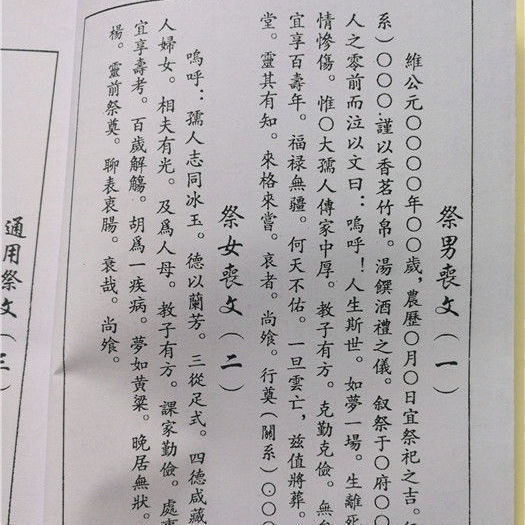 祭男喪文（一）
維公元〇〇〇〇年〇〇歲，農歷〇月〇日宜祭祀之吉。
系）〇〇〇.謹以香茗竹帛。湯饌酒禮之儀。叙祭于〇府〇〇
人之零前而泣以文曰：嗚呼！人生斯世。如夢一場。生離死
情慘傷。惟〇大孺人傳家中厚。教子有方。克勤克儉。無
宜享百壽年。福禄無疆。何天不佑。一旦雲亡，兹值將葬。
堂。靈其有知。來格來嘗。哀者。尚飨。行奠（關系）〇〇
祭女喪文（二）
嗚呼：孺人志同冰玉。德以蘭芳。三從足式。四德咸藏
人婦女。相夫有光。及爲人母。教子有方。課家勤儉。處
宜享壽考。百歲解觴。胡爲一疾病。夢如黄梁。晚居無狀。
楊。靈前祭奠。聊表衷腸。哀哉。尚飨。
通用祭文（三）